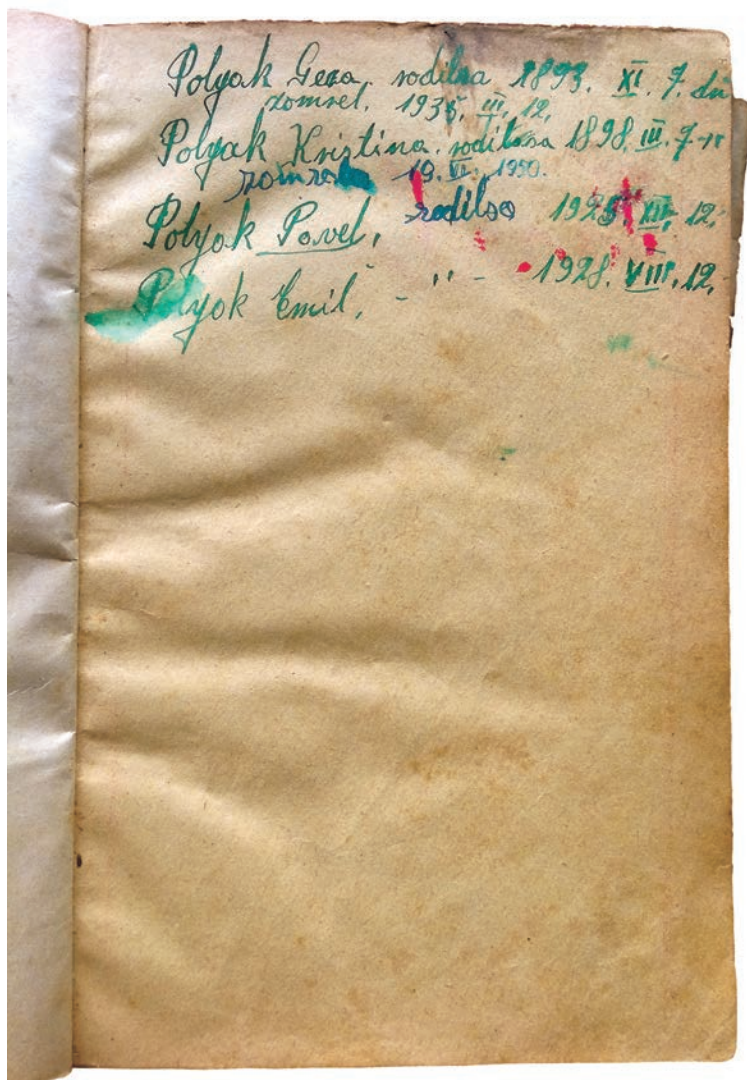 Polyak Geza, rodilsa 1893. XI. 7. dň
zomrel. 1935. III. 12.
Polyak Kristina. rodilasa 1898. III. 7-
zomrela 19. VI. 1950.
Polyak Pavel, rodilsa 1925. XII. 12.
Polyak Emil, - " - 1928. VIII. 12.